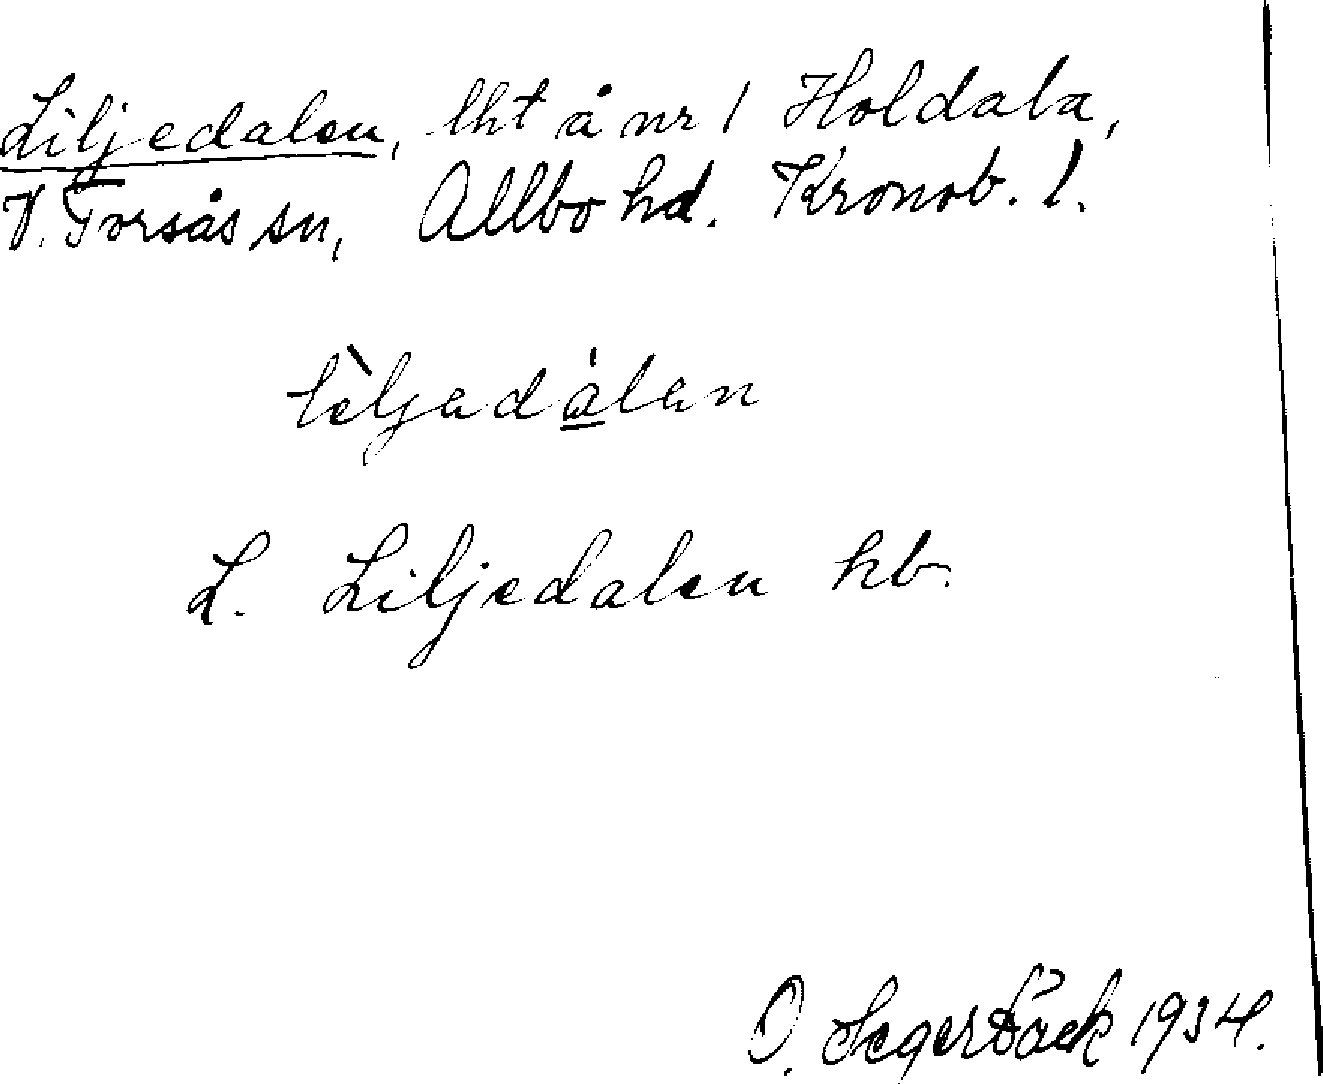 Liljedalen, lht å nr 1 Holdala,
V. Torsås sn, Allbo hd. Kronob. l.
lèljadálan
L. Liljedalen hb.
O. Segerbäck 1934.